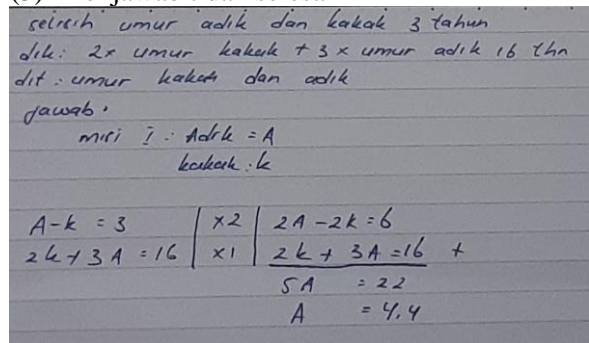 selisih umur adik dan kakak 3 tahun
dik: 2x umur kakak + 3x umur adik 16 thn
dit: umur kakak dan adik
Jawab.
misi I: Adik = A
kakak: k
A-k = 3 | x2 | 2A-2k=6
2k+3A=16 | x1 | 2k+3A=16 +
5A = 22
A = 4,4